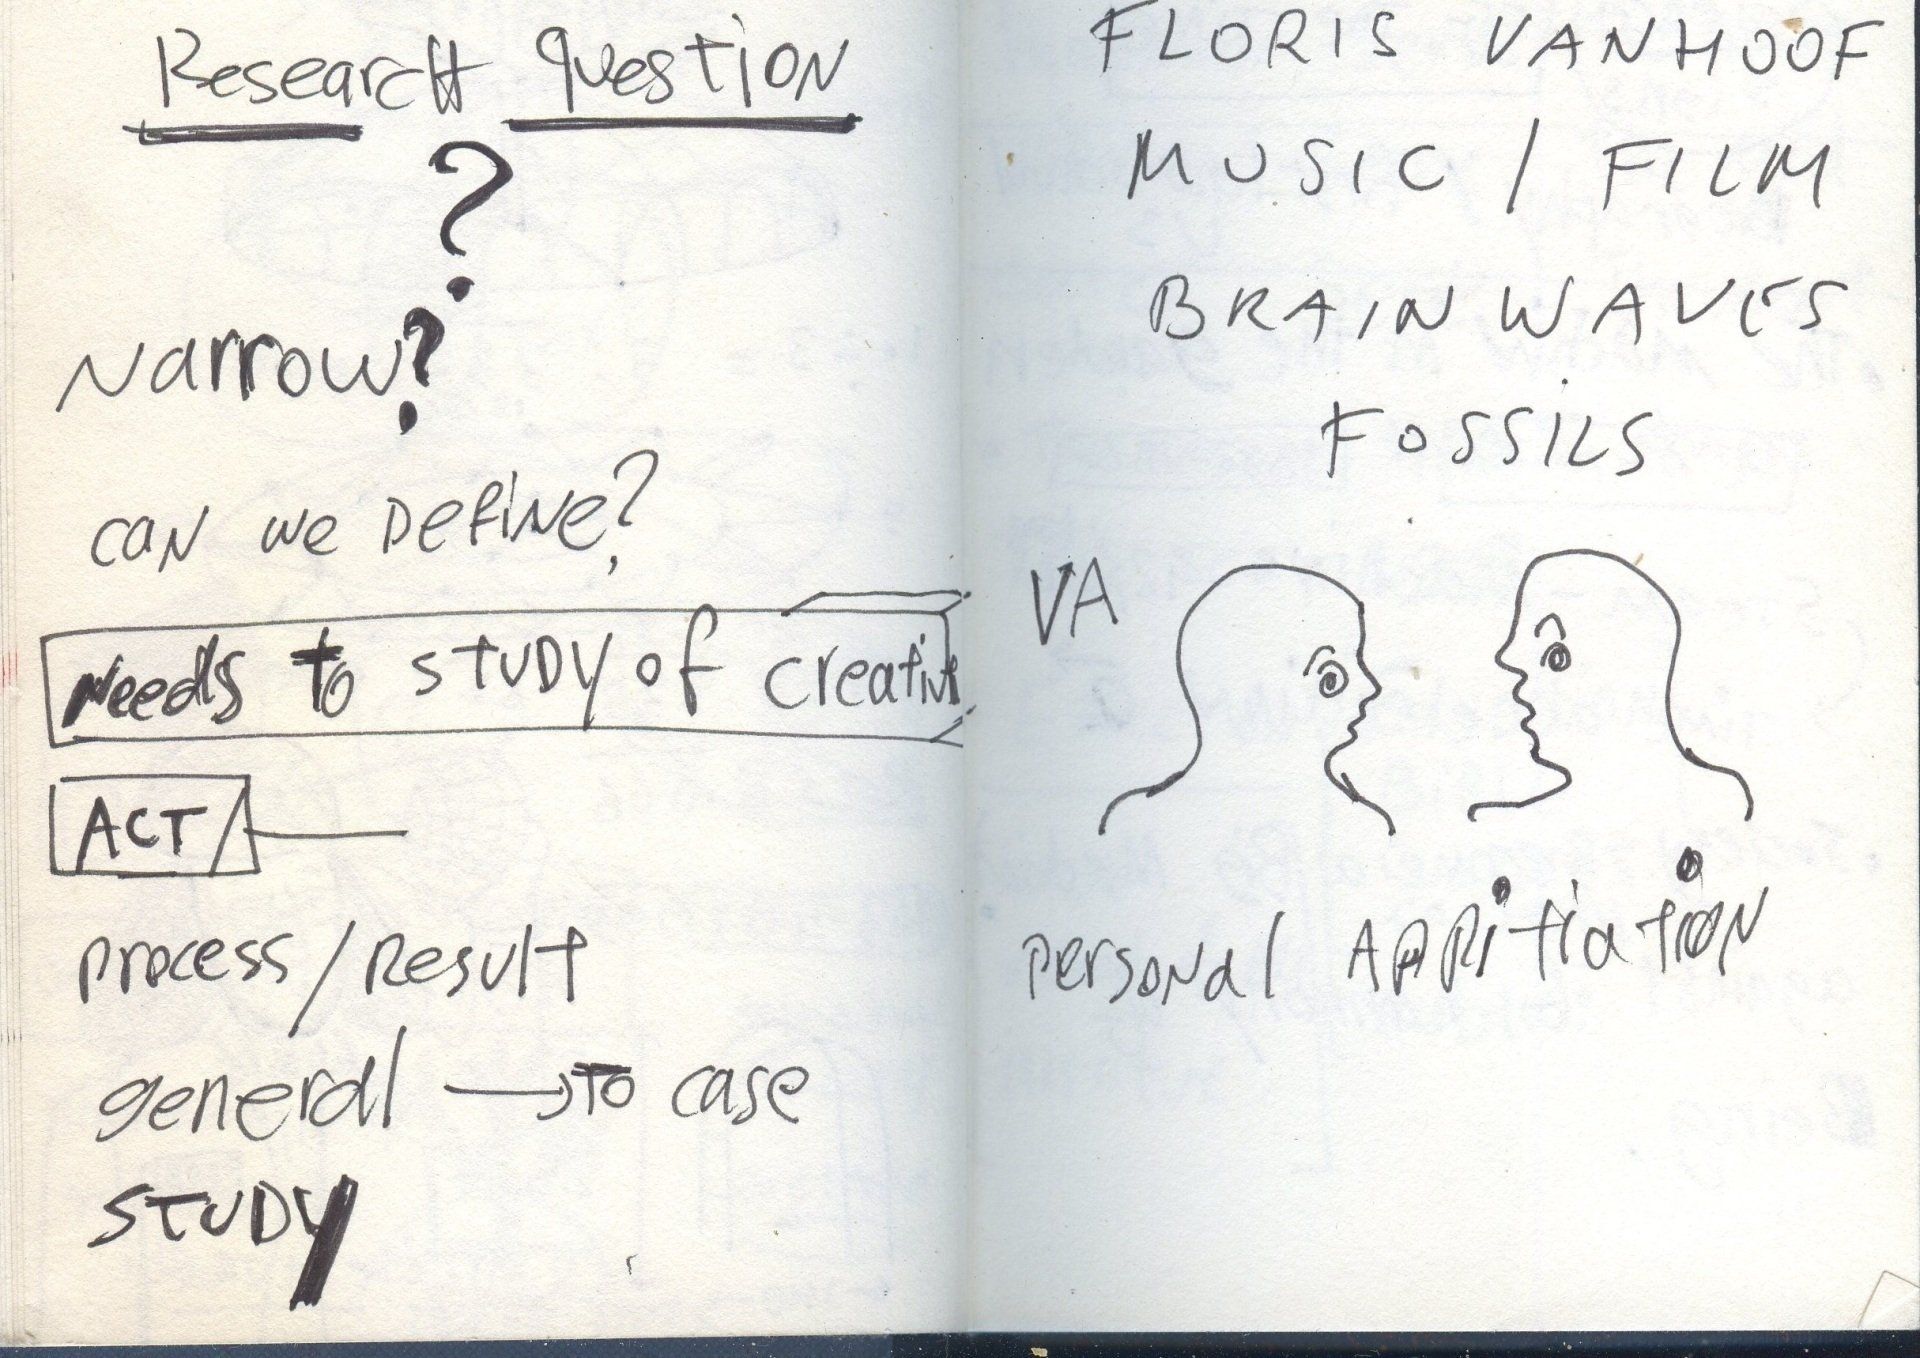 Research Question
?
Narrow?
can we Define?
Needs to STUDY of creative
ACT
process/Result
general → To case
STUDY
FLORIS VANHOOF
MUSIC / FILM
BRAIN WAVES
FOSSILS
VA
Personal APPRitiation